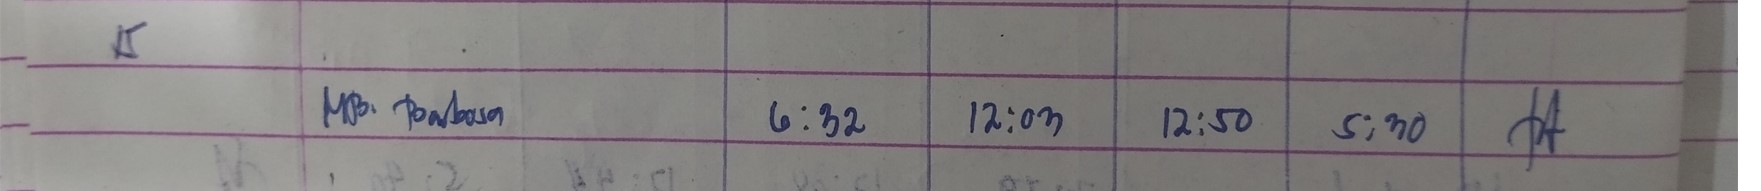 15
MB. Barbosa 6:32 12:03 12:50 5:30